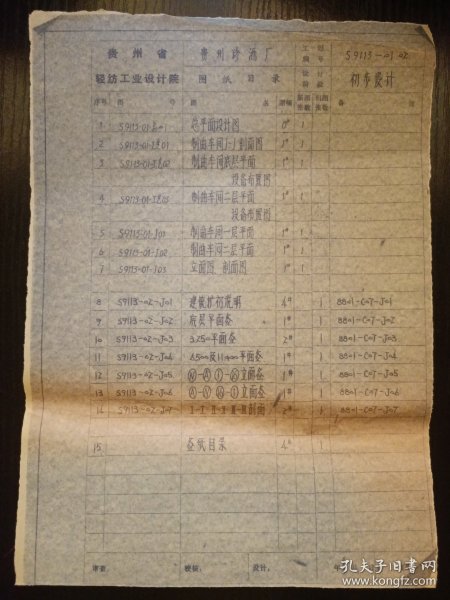 贵州省
轻纺工业设计院
贵州珍酒厂
图纸目录
工程编号
S9113-01.02
设计阶段
初步设计
序号 图号 图名 图幅 新图张数 旧图张数 备注
1 S9113-01-总01 总平面设计图 0# 1
2 S9113-01-工艺01 制曲车间1-1剖面图 1# 1
3 S9113-01-工艺02 制曲车间底层平面 1# 1
设备布置图
4 S9113-01-工艺03 制曲车间二层平面 1# 1
设备布置图
5 S9113-01-J01 制曲车间一层平面 1# 1
6 S9113-01-J02 制曲车间二层平面 1# 1
7 S9113-01-J03 立面图 剖面图 1# 1
8 S9113-02-J01 建筑扩初说明 4# 1 8801-C07-J01
9 S9113-02-J02 底层平面图 1# 1 8801-C07-J02
10 S9113-02-J03 3.250平面图 2# 1 8801-C07-J03
11 S9113-02-J04 6.500及11.400平面图 1# 1 8801-C07-J04
12 S9113-02-J05 立面图 1# 1 8801-C07-J05
13 S9113-02-J06 立面图 1# 1 8801-C07-J06
14 S9113-02-J07 Ⅰ-Ⅰ Ⅱ-Ⅱ Ⅲ-Ⅲ剖面 2# 1 8801-C07-J07
15 图纸目录 4# 1
审查: 校核: 设计:
孔夫子旧书网
www.kongfz.com